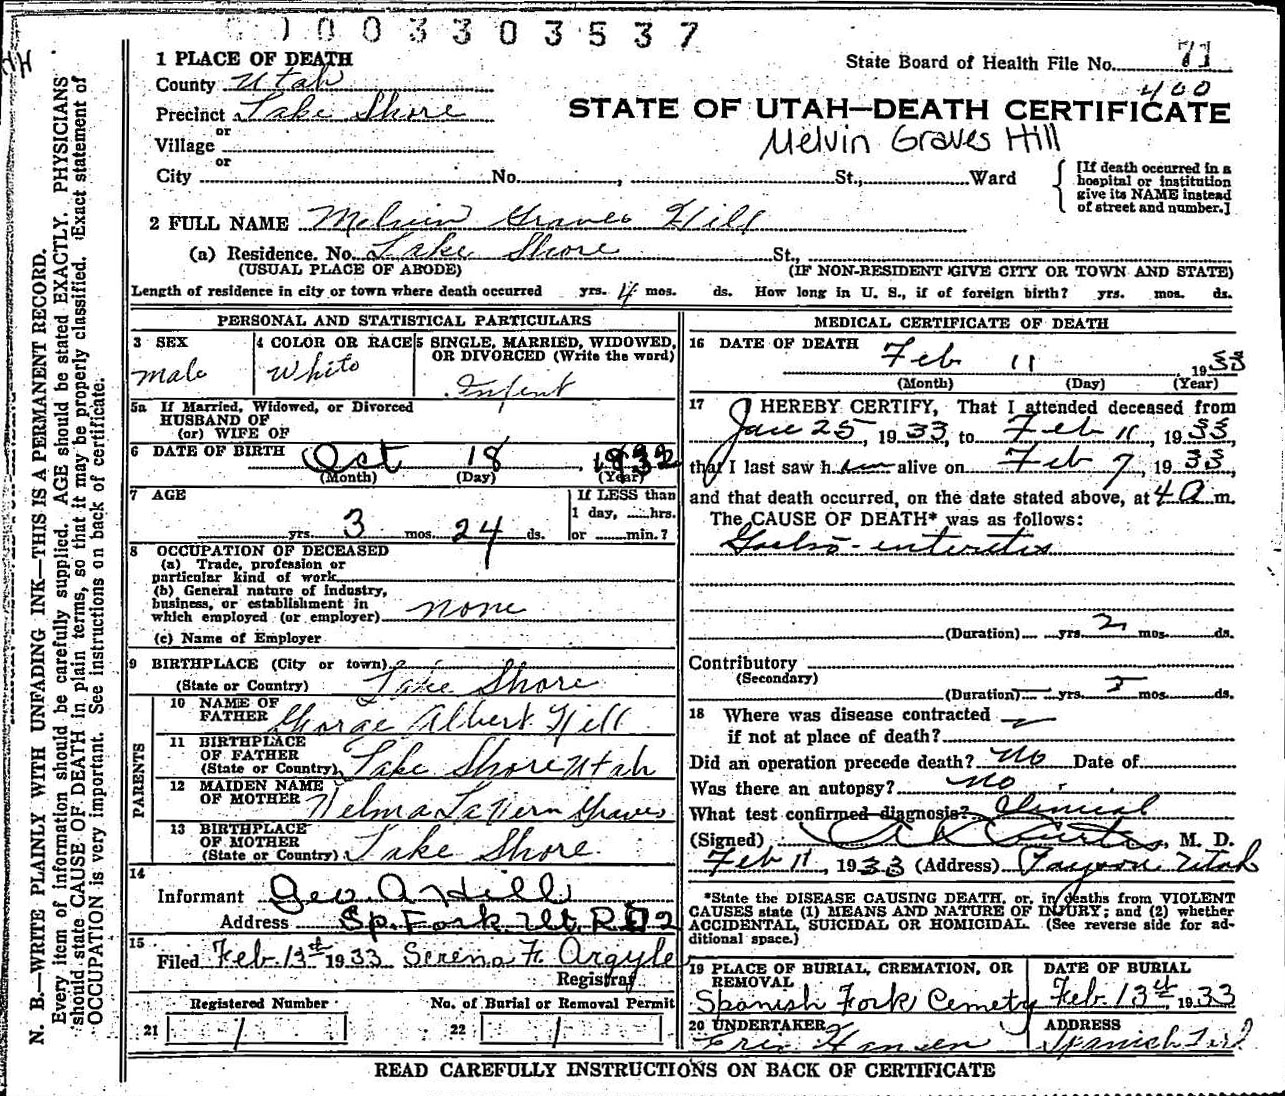 1003303537
1 PLACE OF DEATH
State Board of Health File No. 71
County Utah
400
Precinct Lake Shore
STATE OF UTAH—DEATH CERTIFICATE
or
Melvin Graves Hill
Village
or
City No. , St., Ward
[If death occurred in a hospital or institution give its NAME instead of street and number.]
2 FULL NAME Melvin Graves Hill
(a) Residence. No. Lake Shore St.,
(USUAL PLACE OF ABODE) (IF NON-RESIDENT GIVE CITY OR TOWN AND STATE)
Length of residence in city or town where death occurred yrs. 4 mos. ds. How long in U. S., if of foreign birth? yrs. mos. ds.
PERSONAL AND STATISTICAL PARTICULARS
3 SEX
Male
4 COLOR OR RACE
White
5 SINGLE, MARRIED, WIDOWED,
OR DIVORCED (Write the word)
Infent
5a If Married, Widowed, or Divorced
HUSBAND OF
(or) WIFE OF
6 DATE OF BIRTH Oct 18, 1932
(Month) (Day) (Year)
7 AGE
yrs. 3 mos. 24 ds.
If LESS than
1 day, hrs.
or min.?
8 OCCUPATION OF DECEASED
(a) Trade, profession or
particular kind of work
(b) General nature of industry,
business, or establishment in
which employed (or employer) none
(c) Name of Employer
9 BIRTHPLACE (City or town)
(State or Country) Lake Shore
PARENTS
10 NAME OF
FATHER George Albert Hill
11 BIRTHPLACE
OF FATHER
(State or Country) Lake Shore Utah
12 MAIDEN NAME
OF MOTHER Velma LaVern Graves
13 BIRTHPLACE
OF MOTHER
(State or Country) Lake Shore
14
Informant Geo. A Hill
Address Sp. Fork Ut. RD 2
15
Filed Feb. 13th 1933 Serena F. Argyle
Registrar
Registered Number No. of Burial or Removal Permit
21 1 22 1
MEDICAL CERTIFICATE OF DEATH
16 DATE OF DEATH Feb 11 1933
(Month) (Day) (Year)
17 I HEREBY CERTIFY, That I attended deceased from
Jan 25, 1933, to Feb 11, 1933,
that I last saw him alive on Feb 7, 1933,
and that death occurred, on the date stated above, at 4 a m.
The CAUSE OF DEATH* was as follows:
Gastro-enteritis
(Duration) yrs. 2 mos. ds.
Contributory
(Secondary)
(Duration) yrs. mos. ds.
18 Where was disease contracted
if not at place of death?
Did an operation precede death? No Date of
Was there an autopsy? No
What test confirmed diagnosis? Clinical
(Signed) A L Curtis, M. D.
Feb 11, 1933 (Address) Payson Utah
*State the DISEASE CAUSING DEATH, or, in deaths from VIOLENT
CAUSES state (1) MEANS AND NATURE OF INJURY; and (2) whether
ACCIDENTAL, SUICIDAL OR HOMICIDAL. (See reverse side for ad-
ditional space.)
19 PLACE OF BURIAL, CREMATION, OR
REMOVAL
Spanish Fork Cemety
DATE OF BURIAL
Feb. 13th, 1933
20 UNDERTAKER
Hansen
ADDRESS
Spanish Fork
READ CAREFULLY INSTRUCTIONS ON BACK OF CERTIFICATE
N. B.—WRITE PLAINLY WITH UNFADING INK—THIS IS A PERMANENT RECORD.
Every item of information should be carefully supplied. AGE should be stated EXACTLY. PHYSICIANS
should state CAUSE OF DEATH in plain terms, so that it may be properly classified. Exact statement of
OCCUPATION is very important. See instructions on back of certificate.